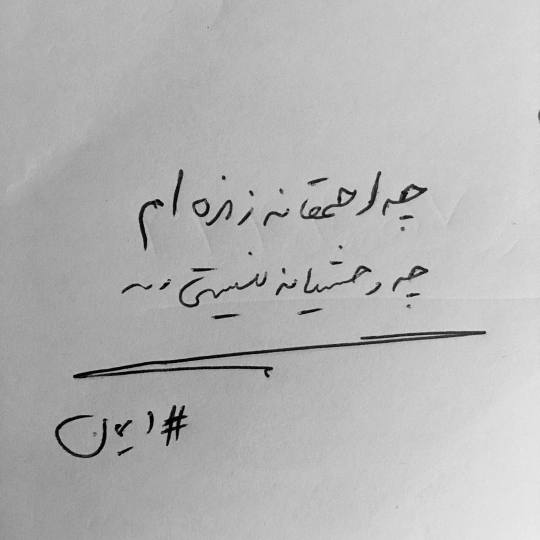 چه احمقانه زنده ام
چه وحشیانه نیستی
#ایهان